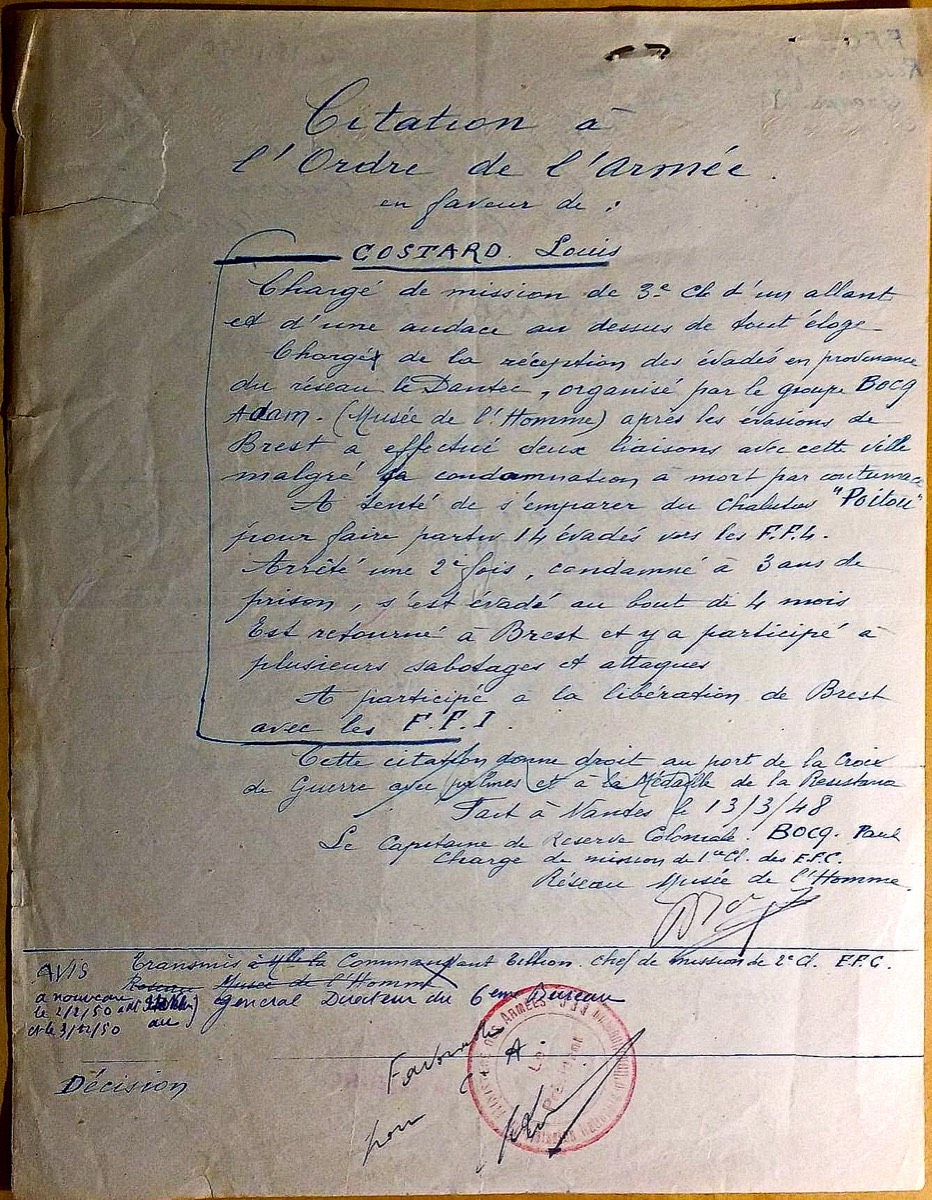 Citation à
l'Ordre de l'Armée.
en faveur de :
COSTARD. Louis
Chargé de mission de 3e Cl. d'un allant
et d'une audace au dessus de tout éloge
Chargé de la réception des évadés en provenance
du réseau le Dantec, organisé par le groupe BOCQ
Adam. (Musée de l'Homme) après les évasions de
Brest a effectué deux liaisons avec cette ville
malgré sa condamnation à mort par contumace
A tenté de s'emparer du chalutier "Poitou"
pour faire partir 14 évadés vers les F.F.L.
Arrêté une 2e fois, condamné à 3 ans de
prison, s'est évadé au bout de 4 mois
Est retourné à Brest et y a participé à
plusieurs sabotages et attaques
A participé a la libération de Brest
avec les F.F.I.
Cette citation donne droit au port de la Croix
de Guerre avec palmes et à la Médaille de la Resistance
Fait à Nantes le 13/3/48
Le Capitaine de Reserve Coloniale. BOCQ. Paul
Chargé de mission de 1ere Cl. des F.F.C.
Réseau Musée de l'Homme.
AVIS Transmis à Mlle la Commandant Tillion. Chef de mission de 2e Cl. F.F.C.
Reseau Musée de l'Homme
a nouveau
le 2/2/50
et le 3/12/50 au General Directeur du 6eme Bureau
Favorable
A.
pour
Le Président
Décision